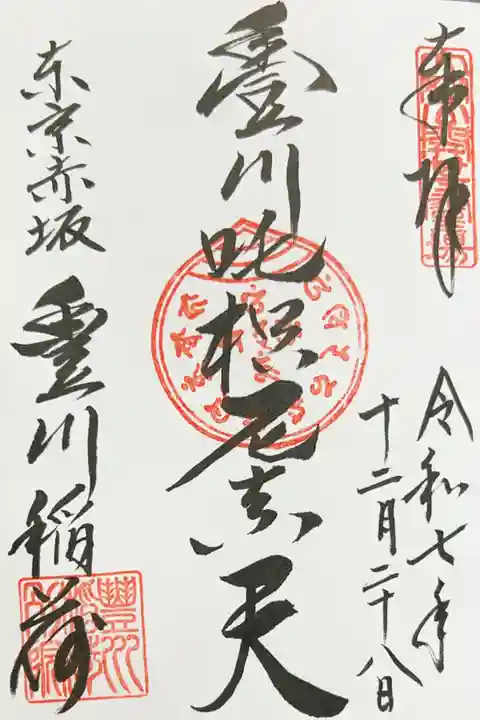 奉拝
令和七年
十二月二十八日
豊川吒枳尼真天
東京赤坂
豊川稲荷